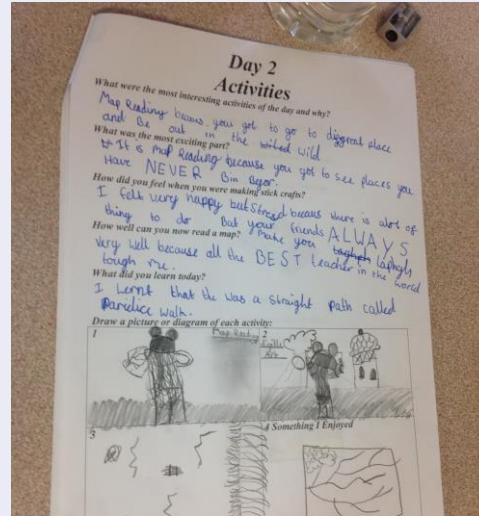 Day 2
Activities
What were the most interesting activities of the day and why?
Map Reading becaus you got to go to diggrent place
and Be out in the wild
What was the most exciting part?
It is Map Reading because you got to see places you
Have NEVER Bin Begor.
How did you feel when you were making stick crafts?
I felt very happy but Stresd becaus there is alot of
thing to do But your friends ALWAYS
make you laphgh
How well can you now read a map?
Very well because all the BEST teacher in the world
tough me.
What did you learn today?
I Lernt that the was a straight path called
Paredice walk.
Draw a picture or diagram of each activity:
1
Map Reading
2
3
4 Something I Enjoyed